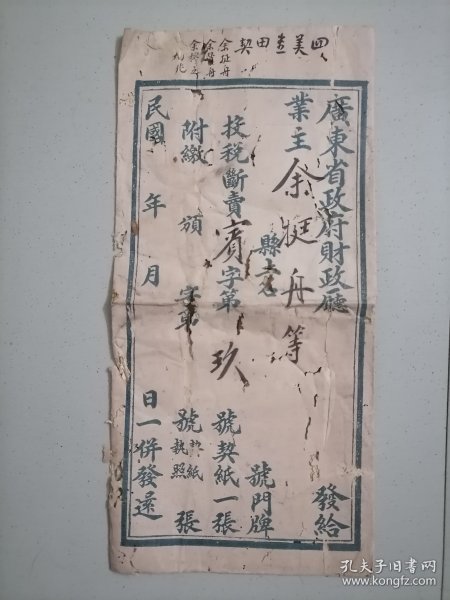 四美查田契
余征舟
余登舟
余揆之
廣東省政府財政廳 發給
業主余挺舟等
縣土名 號門牌
投稅斷賣賓字第玖號契紙一張
附繳 頒 字第 號契紙執照 張
民國 年 月 日一併發還
孔夫子旧书网
www.kongfz.com